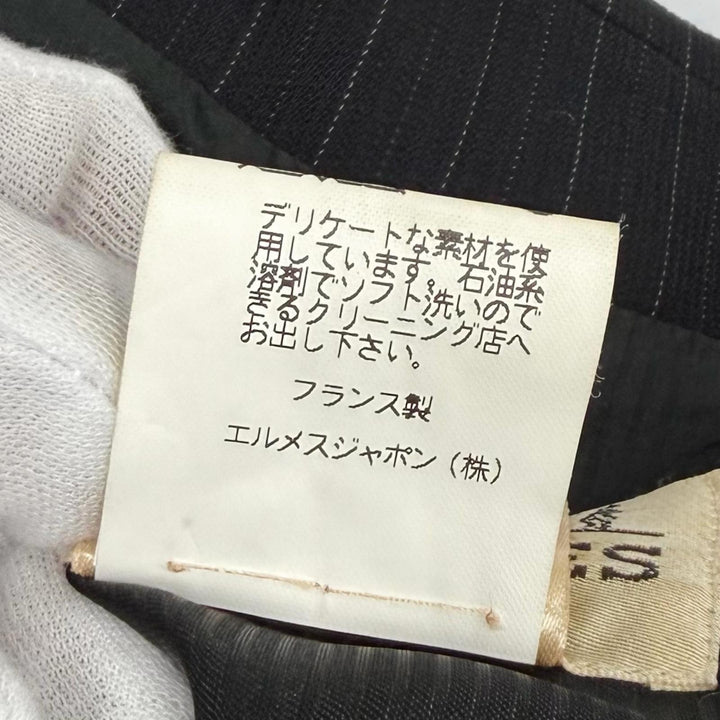 デリケートな素材を使
用しています。石油系
溶剤でソフト洗いので
きるクリーニング店へ
お出し下さい。
フランス製
エルメスジャポン（株）
ES